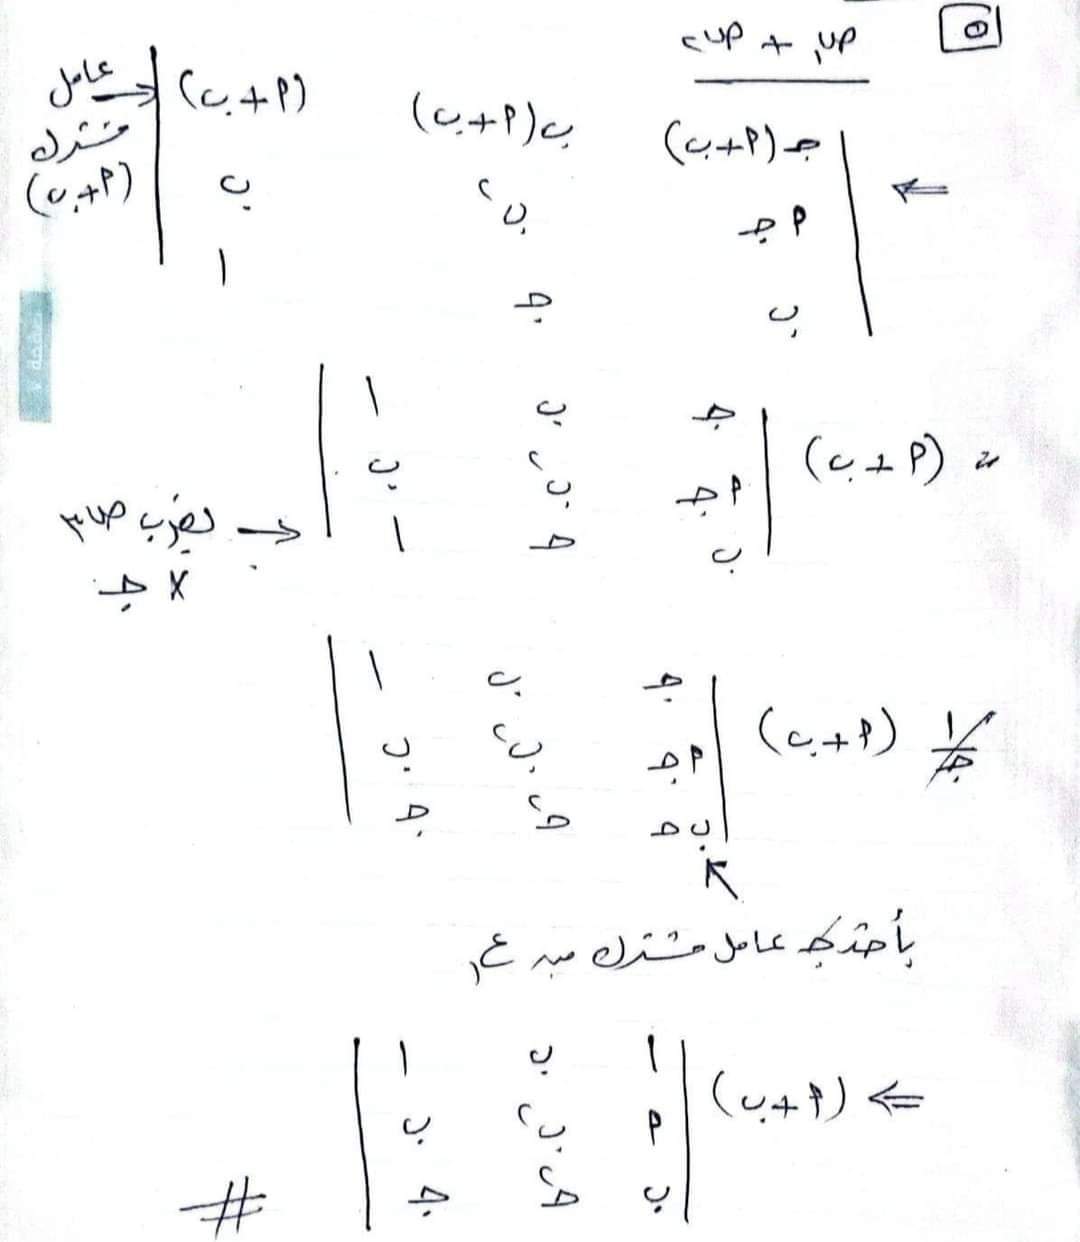 ٥
ص١ + ص٢
جـ(أ+ب) ب(أ+ب) (أ+ب) ← عامل
مشترك
(أ+ب)
أ جـ ب٢ ب
ب جـ ١
= (أ+ب) جـ ب ١
أ جـ ب٢ ب
ب جـ ١ ← بضرب ص٣
× جـ
١/جـ (أ+ب) جـ ب ١
أ جـ ب٢ ب
ب جـ جـ٢ جـ
بأخذ جـ عامل مشترك من ع١
⇐ (أ+ب) ١ ب ١
أ ب٢ ب
ب جـ٢ جـ
#